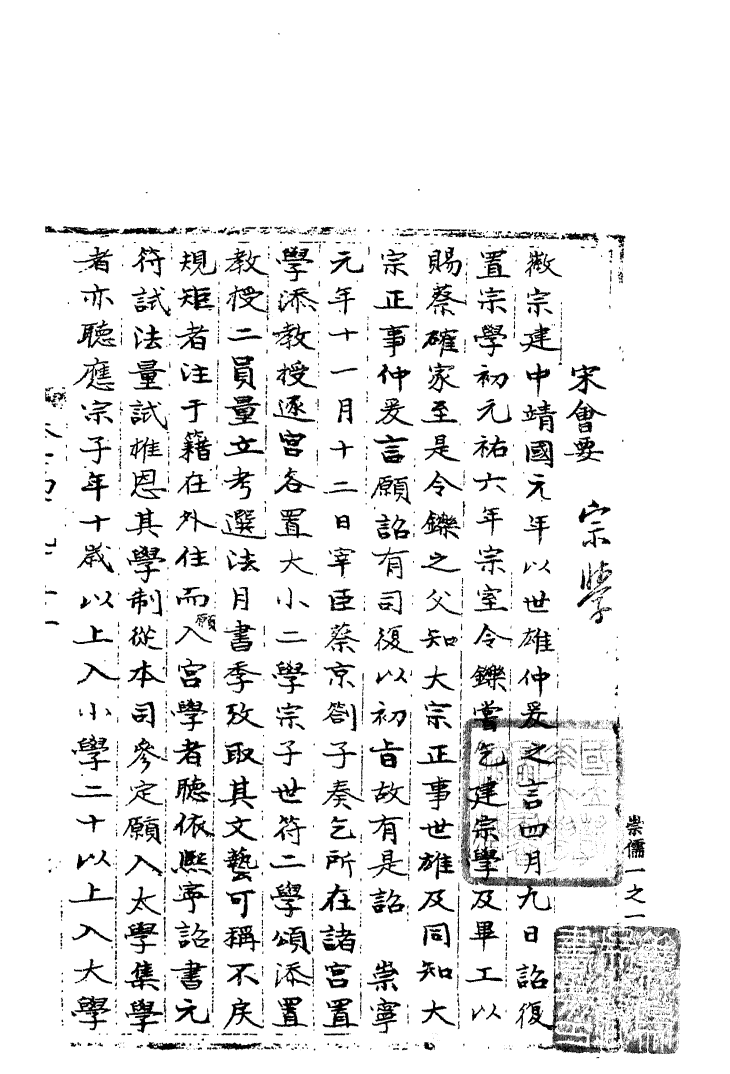 宋會要 宗學
徽宗建中靖國元年以世雄仲爰之言四月九日詔復
置宗學初元祐六年宗室令鑠嘗乞建宗學及畢工以
賜蔡確家至是令鑠之父知大宗正事世雄及同知大
宗正事仲爰言願詔有司復以初旨故有是詔 崇寧
元年十一月十二日宰臣蔡京劄子奏乞所在諸宮置
學添教授逐宮各置大小二學宗子世符二學頌添置
教授二員量立考選法月書季攷取其文藝可稱不戾
規矩者注于籍在外住而願入宮學者聽依熙寧詔書元
符試法量試推恩其學制從本司參定願入太學集學
者亦聽應宗子年十歲以上入小學二十以上入大學
崇儒一之一